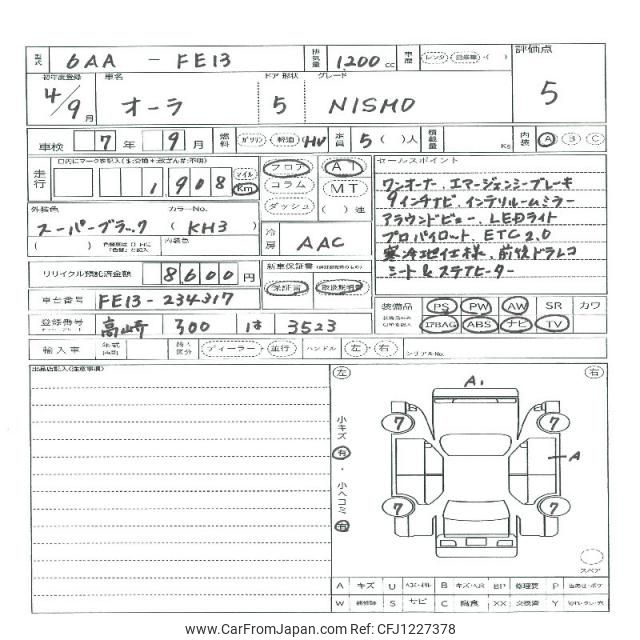 型式 6AA - FE13 排気量 1200 cc 車歴 レンタ・回送車・( ) 評価点
初年度登録 車名 ドア 形状 グレード
4/9月 オーラ 5 NISMO 5
車検 7年 9月 燃料 ガソリン・軽油・HV 定員 5( )人 積載量 Kg 内装 A B C
走行 1,908 マイル Km
フロア コラム ダッシュ AT MT ( )速
セールスポイント
ワンオーナー、エマージェンシーブレーキ
9インチナビ、インテリルームミラー
アラウンドビュー、LEDライト
プロパイロット、ETC2.0
寒冷地仕様、前後ドラレコ
シート&ステアヒーター
外装色 カラーNo.
スーパーブラック ( KH3 )
内装色
冷房 AAC
リサイクル預託済金額 8600円
新車保証書
保証書 取扱説明書
車台番号 FE13-234317
装備品 PS PW AW SR カワ
エアBAG ABS ナビ TV
登録番号 高崎 300 は 3523
輸入車 年式 ディーラー・並行 ハンドル 左・右 シリアルNo.
出品店記入(注意事項)
左 右
A1
小キズ 有・小ヘコミ 有
7 7
A
7 7
スペア
A キズ U B BP 修理要 P
W S サビ C 腐食 XX 交換済 Y
www.CarFromJapan.com - CFJ1227378